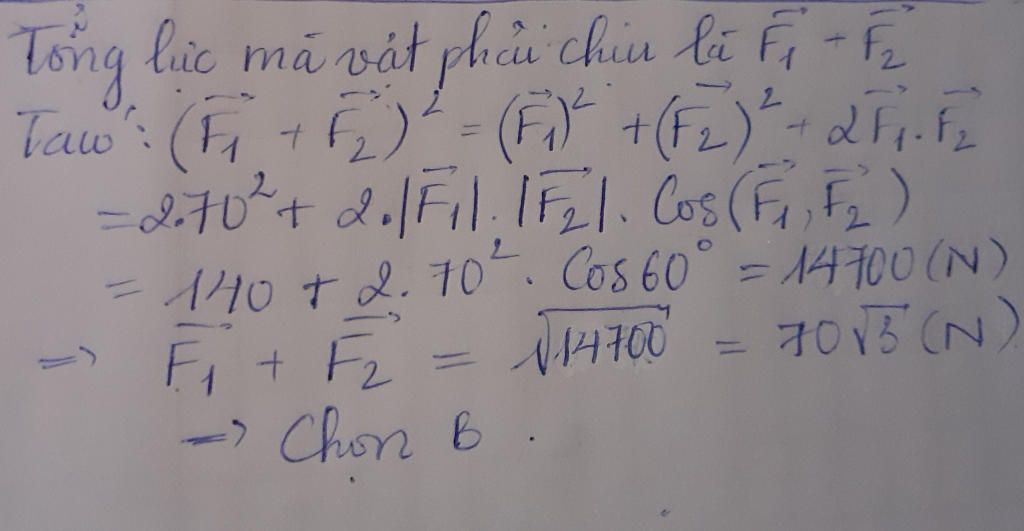 Tổng lực mà vật phải chịu là F₁⃗ + F₂⃗
Ta có: (F₁⃗ + F₂⃗)² = (F₁⃗)² + (F₂⃗)² + 2F₁⃗.F₂⃗
= 2.70² + 2.|F₁⃗|.|F₂⃗|. Cos(F₁⃗, F₂⃗)
= 140 + 2.70². Cos60° = 14700 (N)
=> F₁⃗ + F₂⃗ = √14700 = 70√3 (N)
=> Chọn B.